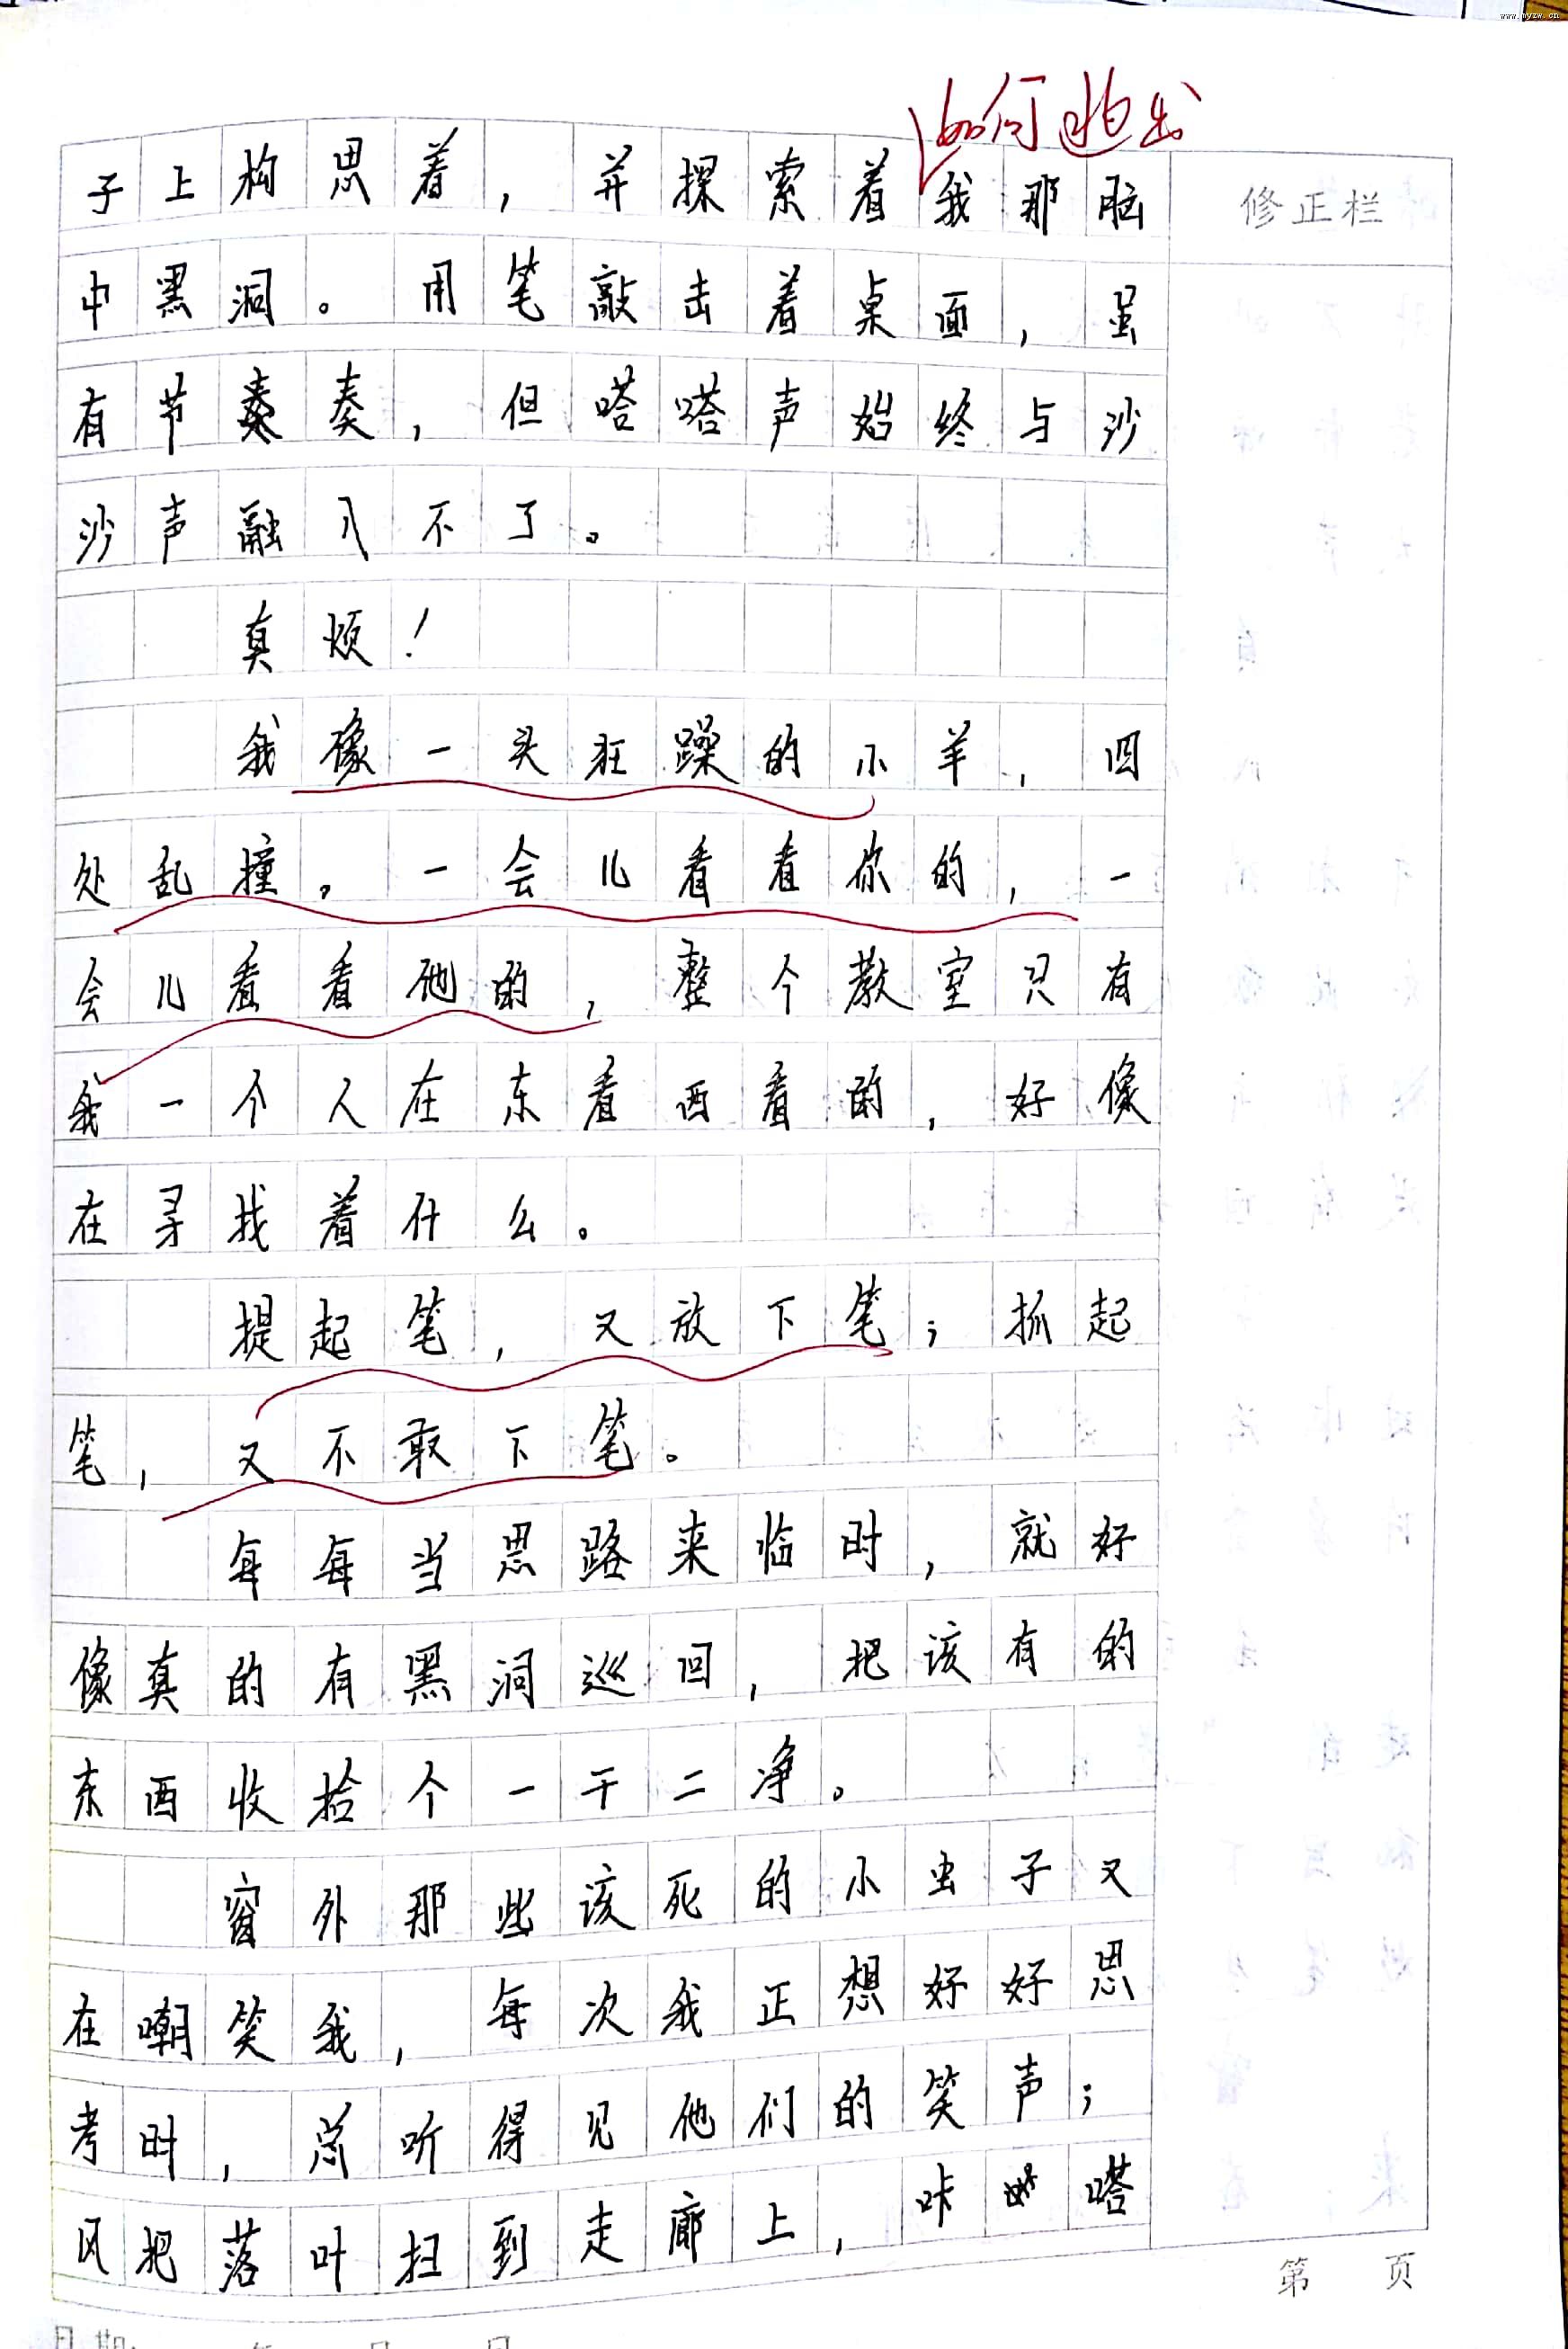 www.myzw.cn
如何逃出
子上构思着，并探索着我那脑
修正栏
中黑洞。用笔敲击着桌面，虽
有节奏奏，但嗒嗒声始终与沙
沙声融入不了。
真烦！
我像一头狂躁的小羊，四
处乱撞。一会儿看看你的，一
会儿看看他的，整个教室只有
我一个人在东看西看的，好像
在寻找着什么。
提起笔，又放下笔；抓起
笔，又不敢下笔。
每每当思路来临时，就好
像真的有黑洞巡回，把该有的
东西收拾个一干二净。
窗外那些该死的小虫子又
在嘲笑我，每次我正想好好思
考时，总听得见他们的笑声；
风把落叶扫到走廊上，咔嗒
第 页
日期： 年 月 日